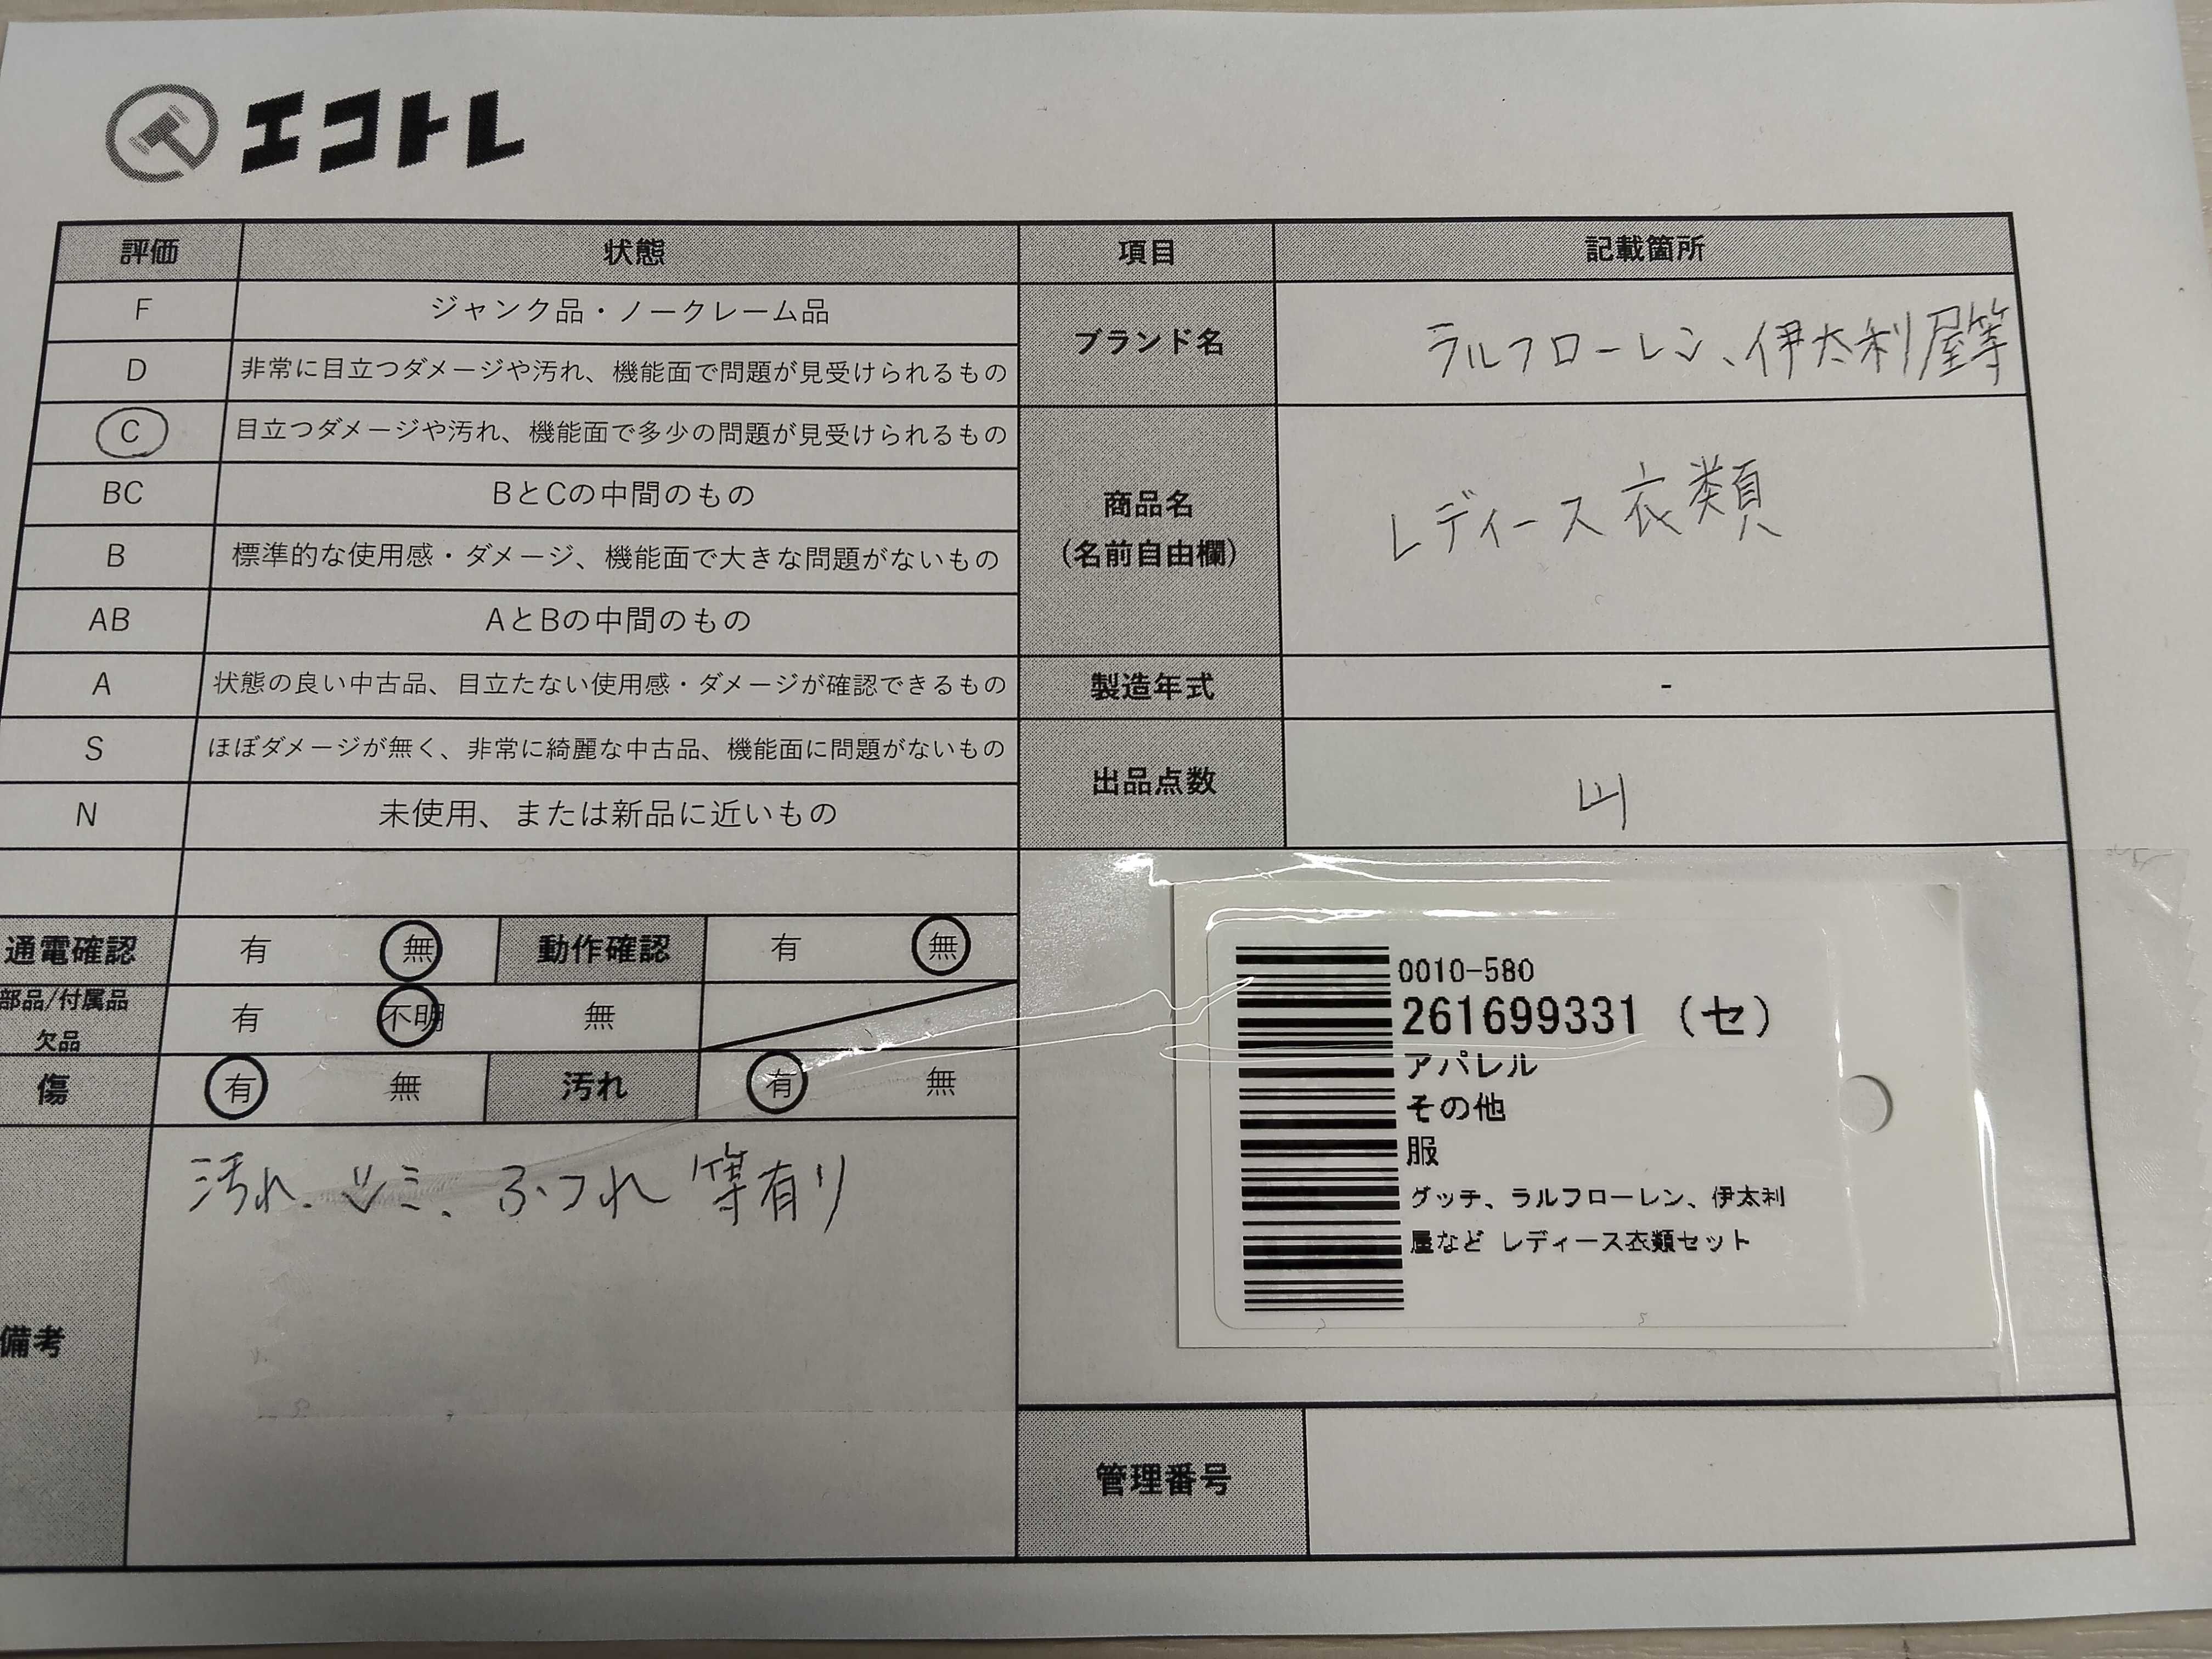 エコトレ
評価 状態 項目 記載箇所
F ジャンク品・ノークレーム品
D 非常に目立つダメージや汚れ、機能面で問題が見受けられるもの
C 目立つダメージや汚れ、機能面で多少の問題が見受けられるもの
BC BとCの中間のもの
B 標準的な使用感・ダメージ、機能面で大きな問題がないもの
AB AとBの中間のもの
A 状態の良い中古品、目立たない使用感・ダメージが確認できるもの
S ほぼダメージが無く、非常に綺麗な中古品、機能面に問題がないもの
N 未使用、または新品に近いもの
ブランド名 ラルフローレン、伊太利屋等
商品名
(名前自由欄)
レディース衣類
製造年式 -
出品点数 山
通電確認 有 無 動作確認 有 無
部品/付属品
欠品
有 不明 無
傷 有 無 汚れ 有 無
備考
汚れ、シミ、ふつれ等有り
0010-580
261699331 (セ)
アパレル
その他
服
グッチ、ラルフローレン、伊太利
屋など レディース衣類セット
管理番号